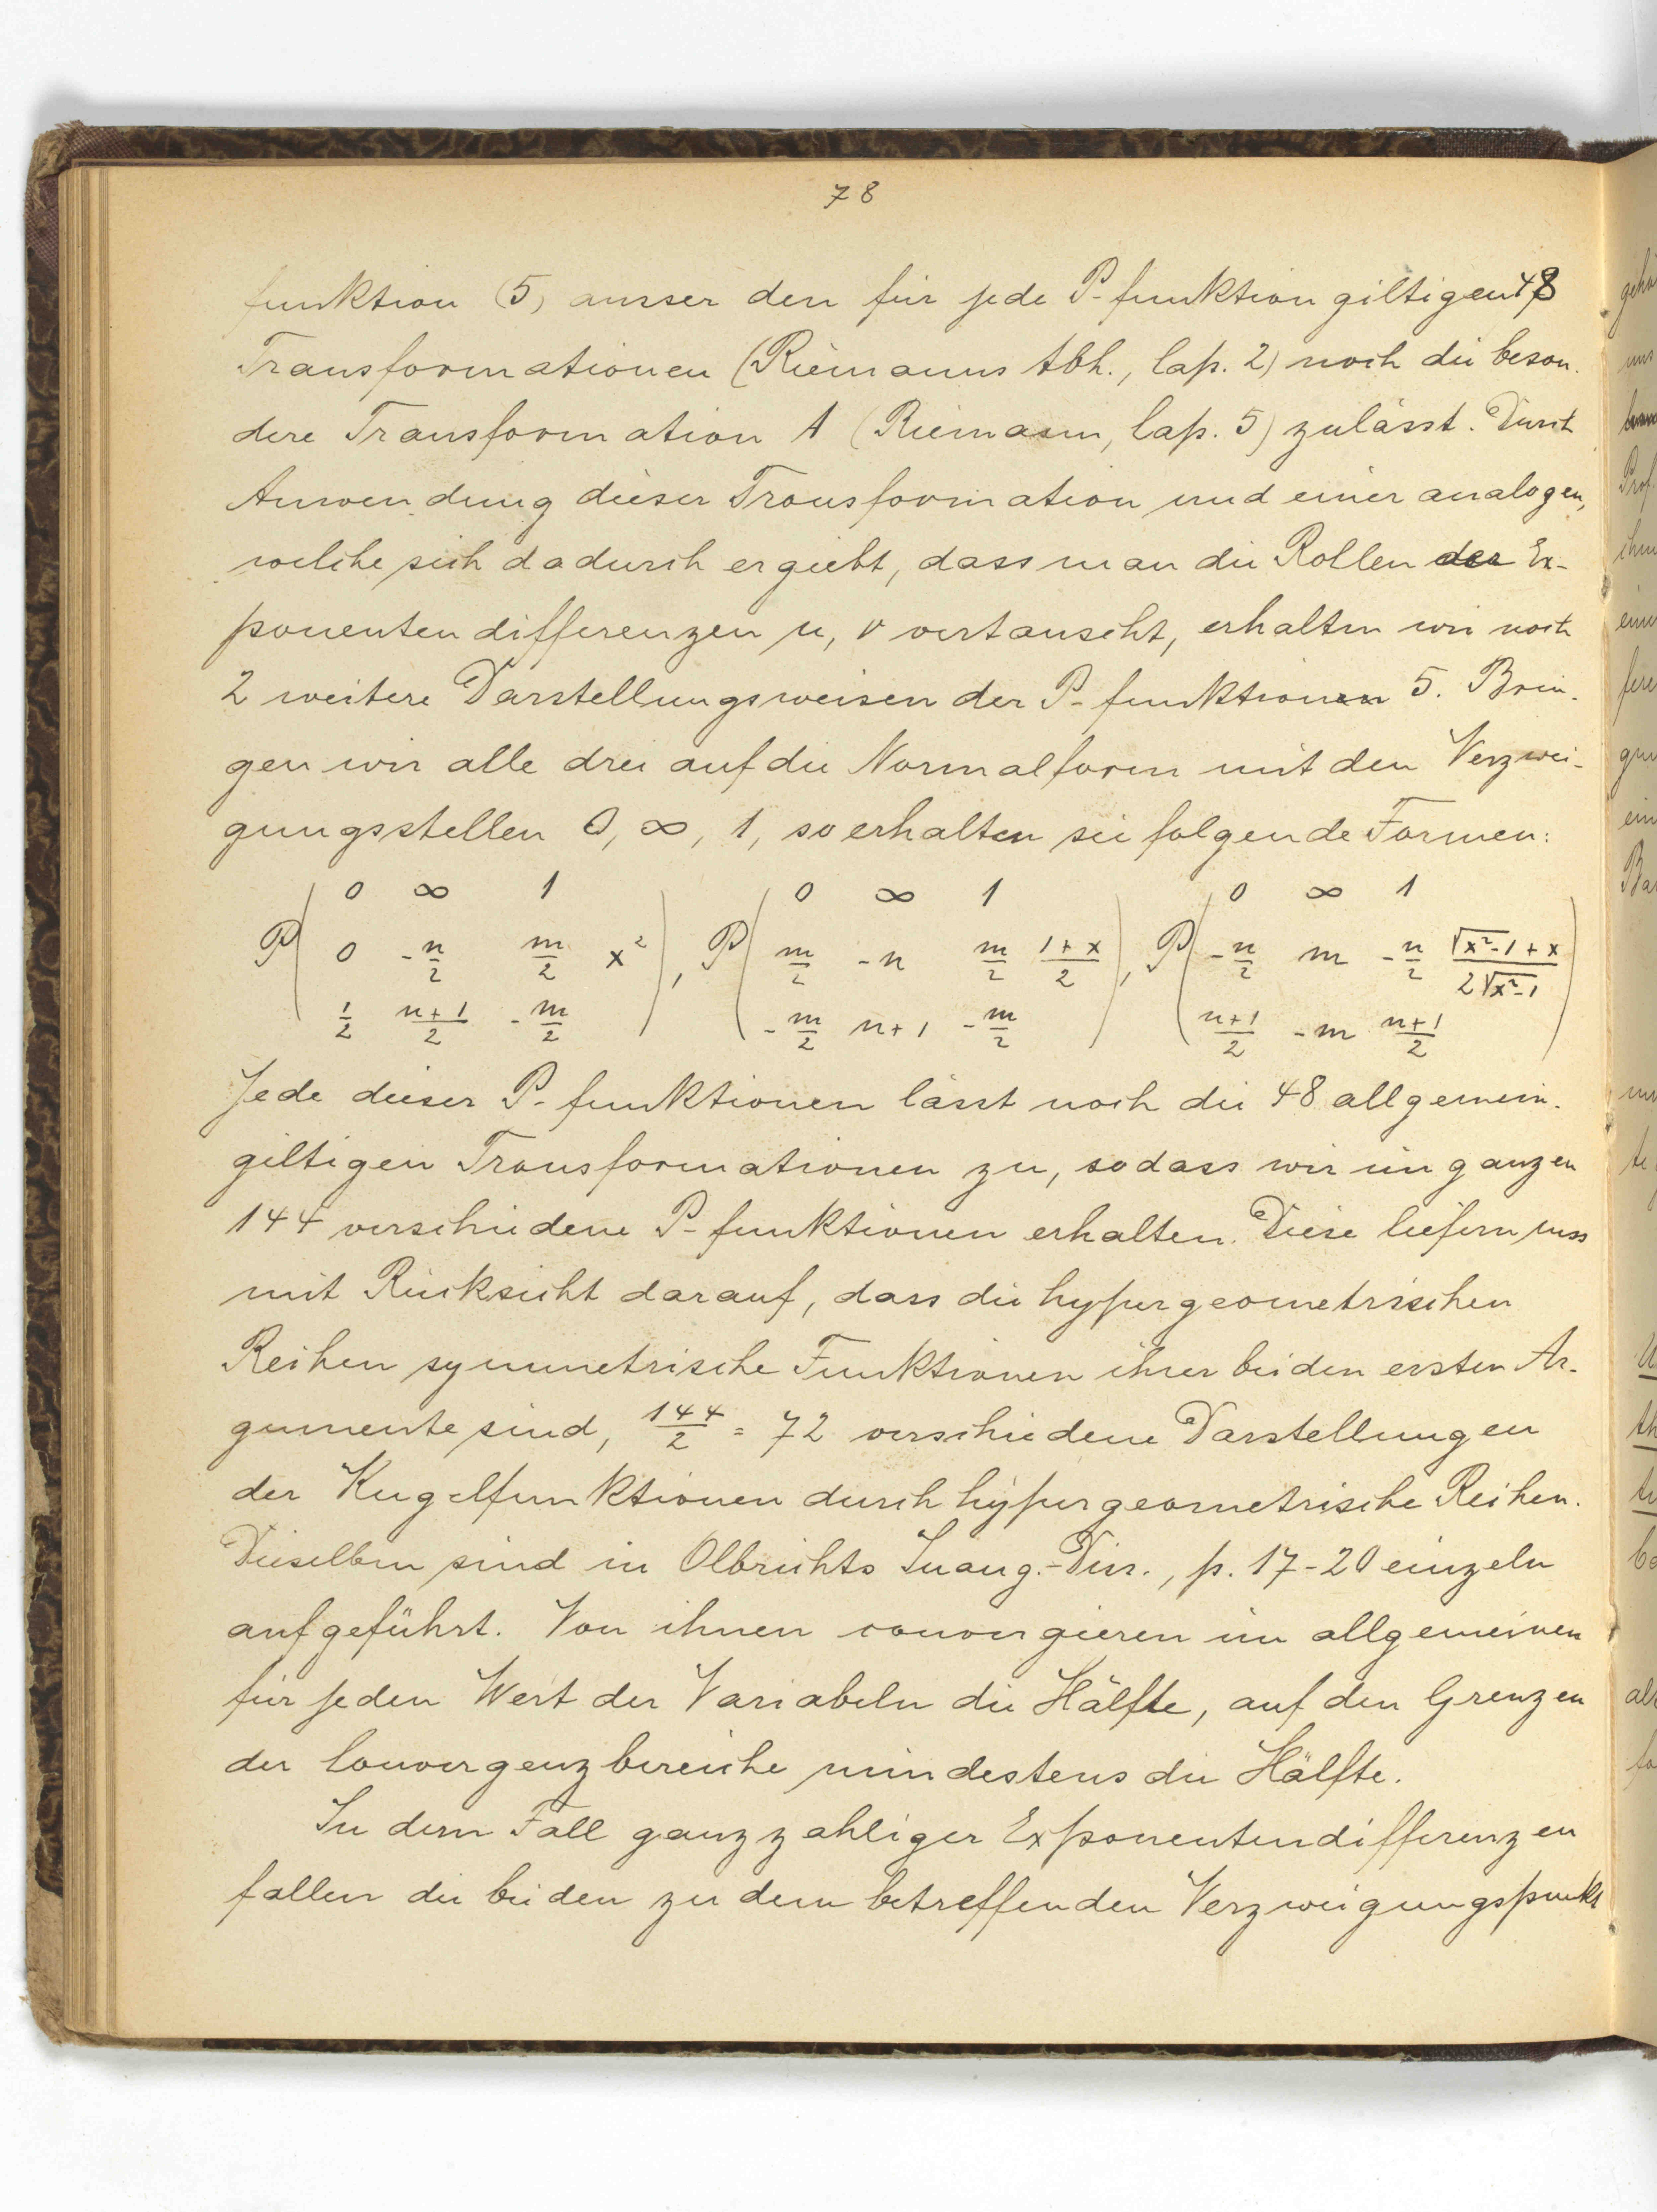 78
funktion (5) ausser den für jede P-funktion giltigen 48
Transformationen (Riemanns Abh., Cap. 2) noch die beson-
dere Transformation A (Riemann, Cap. 5) zulässt. Durch
Anwendung dieser Transformation und einer analogen,
welche sich dadurch ergiebt, dass man die Rollen der Ex-
ponentendifferenzen μ, ν vertauscht, erhalten wir noch
2 weitere Darstellungsweisen der P-funktionen 5. Brin-
gen wir alle drei auf die Normalform mit den Verzwei-
gungsstellen 0, ∞, 1, so erhalten sie folgende Formen:
P( 0 ∞ 1 ; 0 -n/2 m/2 x² ; 1/2 (n+1)/2 -m/2 ), P( 0 ∞ 1 ; m/2 -n m/2 (1+x)/2 ; -m/2 n+1 -m/2 ), P( 0 ∞ 1 ; -n/2 m -n/2 (√x²-1+x)/(2√x²-1) ; (n+1)/2 -m (n+1)/2 )
Jede dieser P-funktionen lässt noch die 48 allgemein-
giltigen Transformationen zu, sodass wir im ganzen
144 verschiedene P-funktionen erhalten. Diese liefern uns
mit Rücksicht darauf, dass die hypergeometrischen
Reihen symmetrische Funktionen ihrer beiden ersten Ar-
gumente sind, 144/2 = 72 verschiedene Darstellungen
der Kugelfunktionen durch hypergeometrische Reihen.
Dieselben sind in Olbrichts Inaug.-Diss., p. 17-20 einzeln
aufgeführt. Von ihnen convergieren im allgemeinen
für jeden Wert der Variabeln die Hälfte, auf den Grenzen
der Convergenzbereiche mindestens die Hälfte.
In dem Fall ganzzahliger Exponentendifferenzen
fallen die beiden zu dem betreffenden Verzweigungspunkt